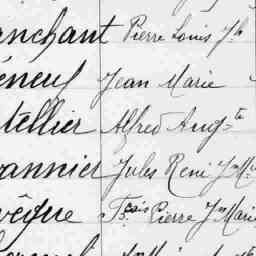 anchant Pierre Louis Jh
éneuf Jean Marie
tellier Alfred Augte
annier Jules René Jn M
vêque Fçois Pierre Jn Marie